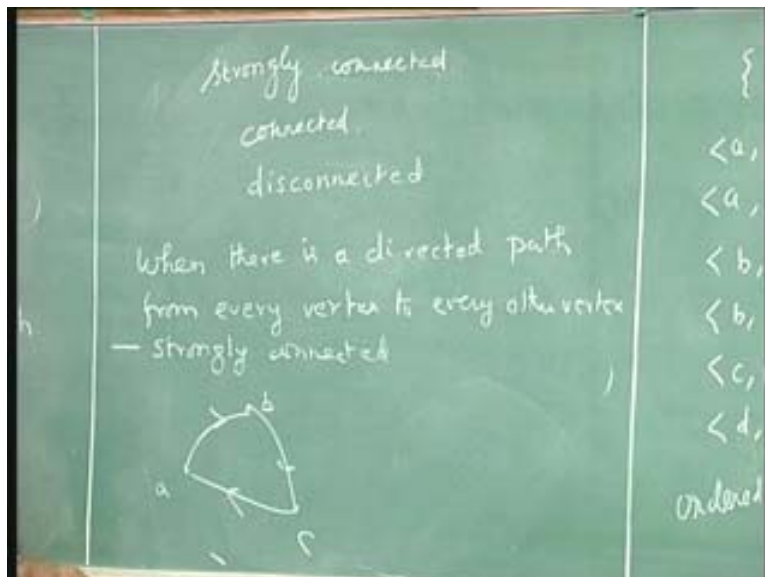 strongly connected
connected
disconnected
When there is a directed path
from every vertex to every other vertex
— strongly connected
b
a
c
)
h
)
{
<a,
<a,
<b,
<b,
<c,
<d,
ordered